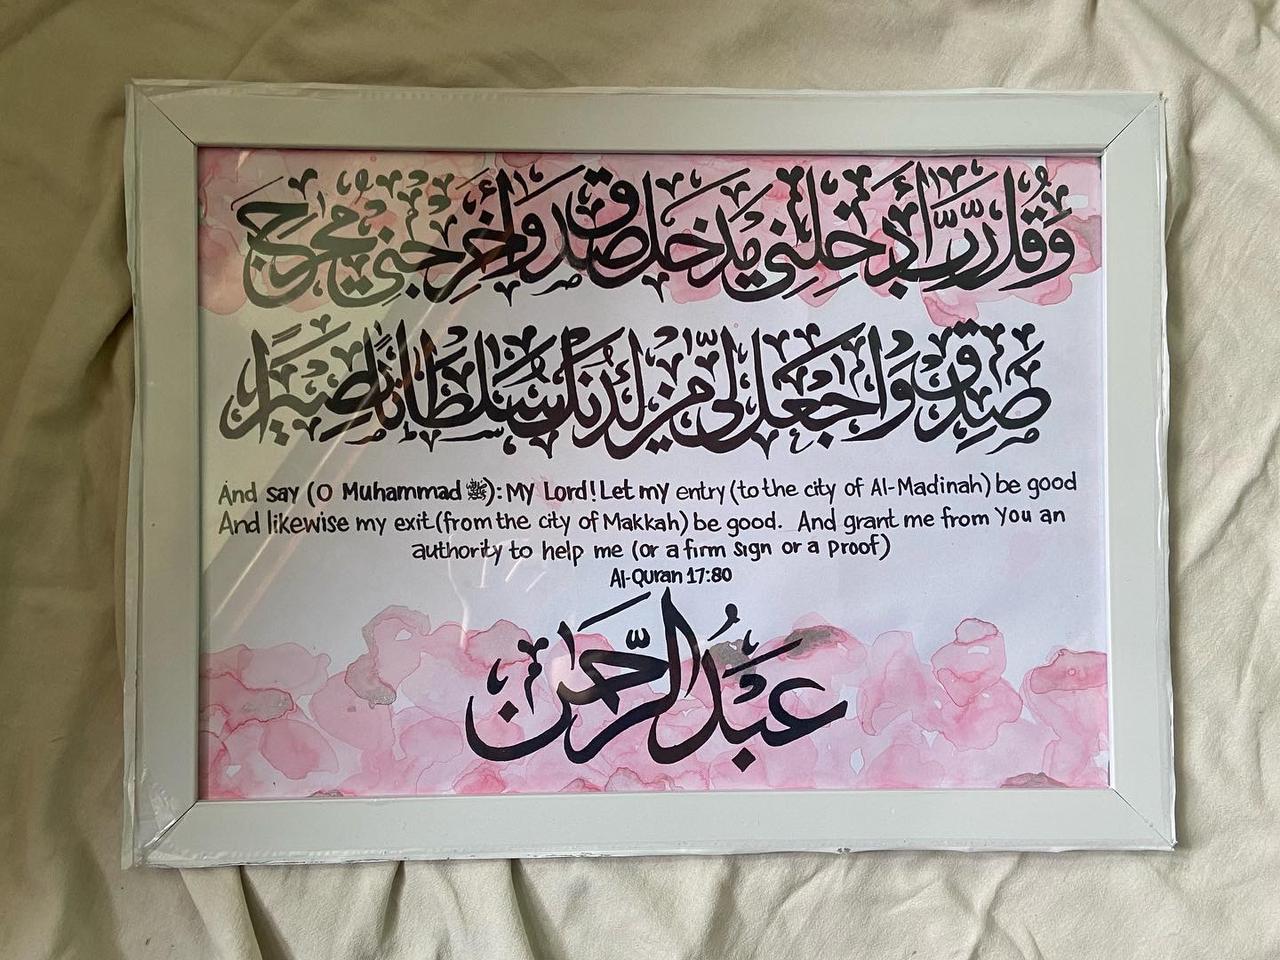 وَقُل رَّبِّ أَدْخِلْنِي مُدْخَلَ صِدْقٍ وَأَخْرِجْنِي مُخْرَجَ
صِدْقٍ وَاجْعَل لِّي مِن لَّدُنكَ سُلْطَانًا نَّصِيرًا
And say (O Muhammad ﷺ): My Lord! Let my entry (to the city of Al-Madinah) be good
And likewise my exit (from the city of Makkah) be good. And grant me from You an
authority to help me (or a firm sign or a proof)
Al-Quran 17:80
عَبْدُ الرَّحْمٰن